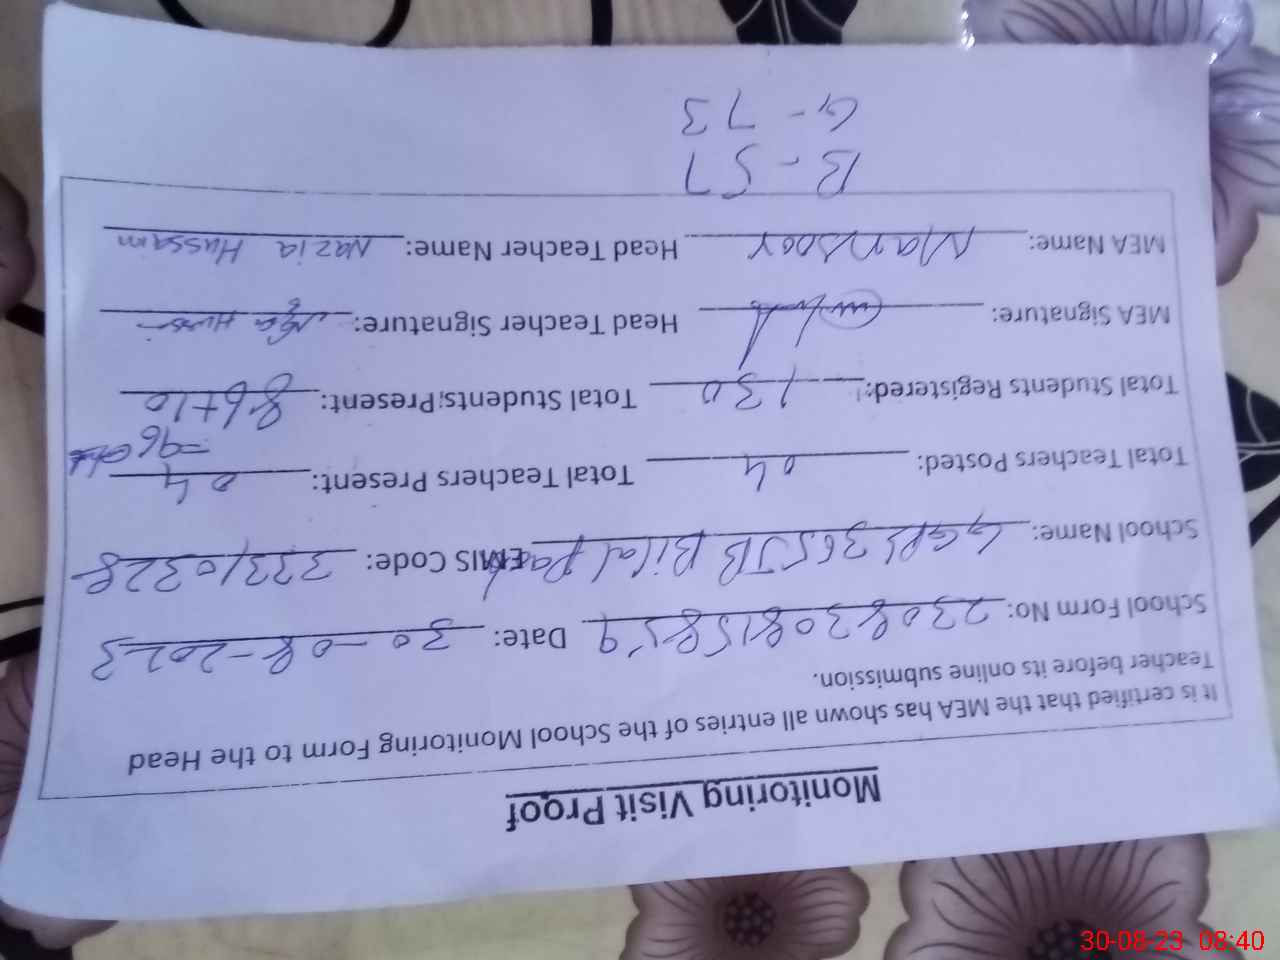 Monitoring Visit Proof
It is certified that the MEA has shown all entries of the School Monitoring Form to the Head
Teacher before its online submission.
School Form No: 230830815859 Date: 30-08-2023
School Name: GGPS 365 JB Bilal Park EMIS Code: 33310328
Total Teachers Posted: 04 Total Teachers Present: 04
=96
Total Students Registered: 130 Total Students Present: 86+10
MEA Signature: Head Teacher Signature:
MEA Name: Mansoor Head Teacher Name: Nazia Hussain
B-57
G-73
30-08-23 08:40